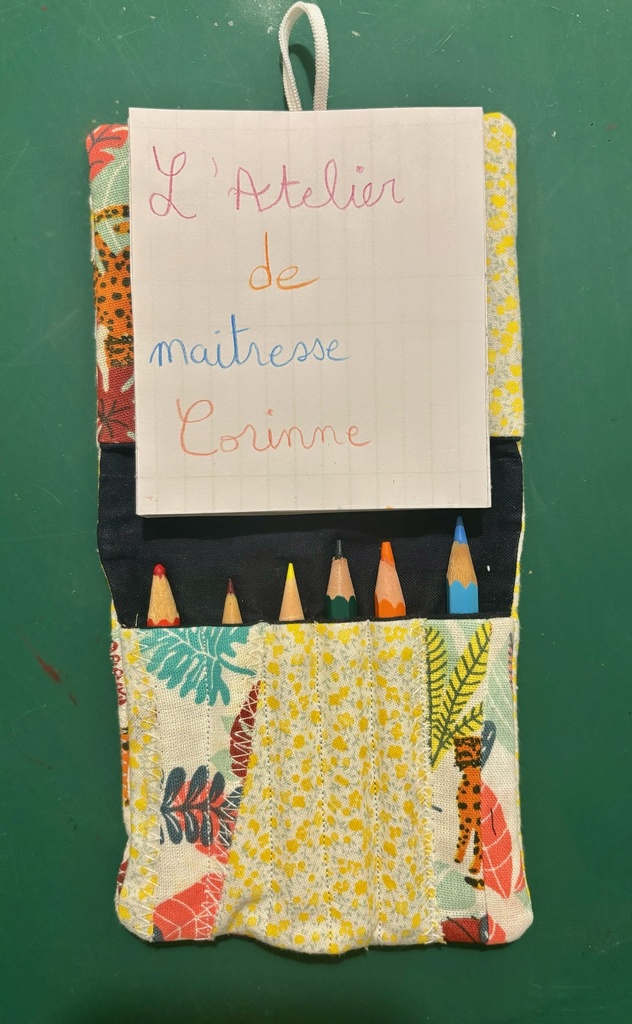 L'Atelier
de
maitresse
Corinne